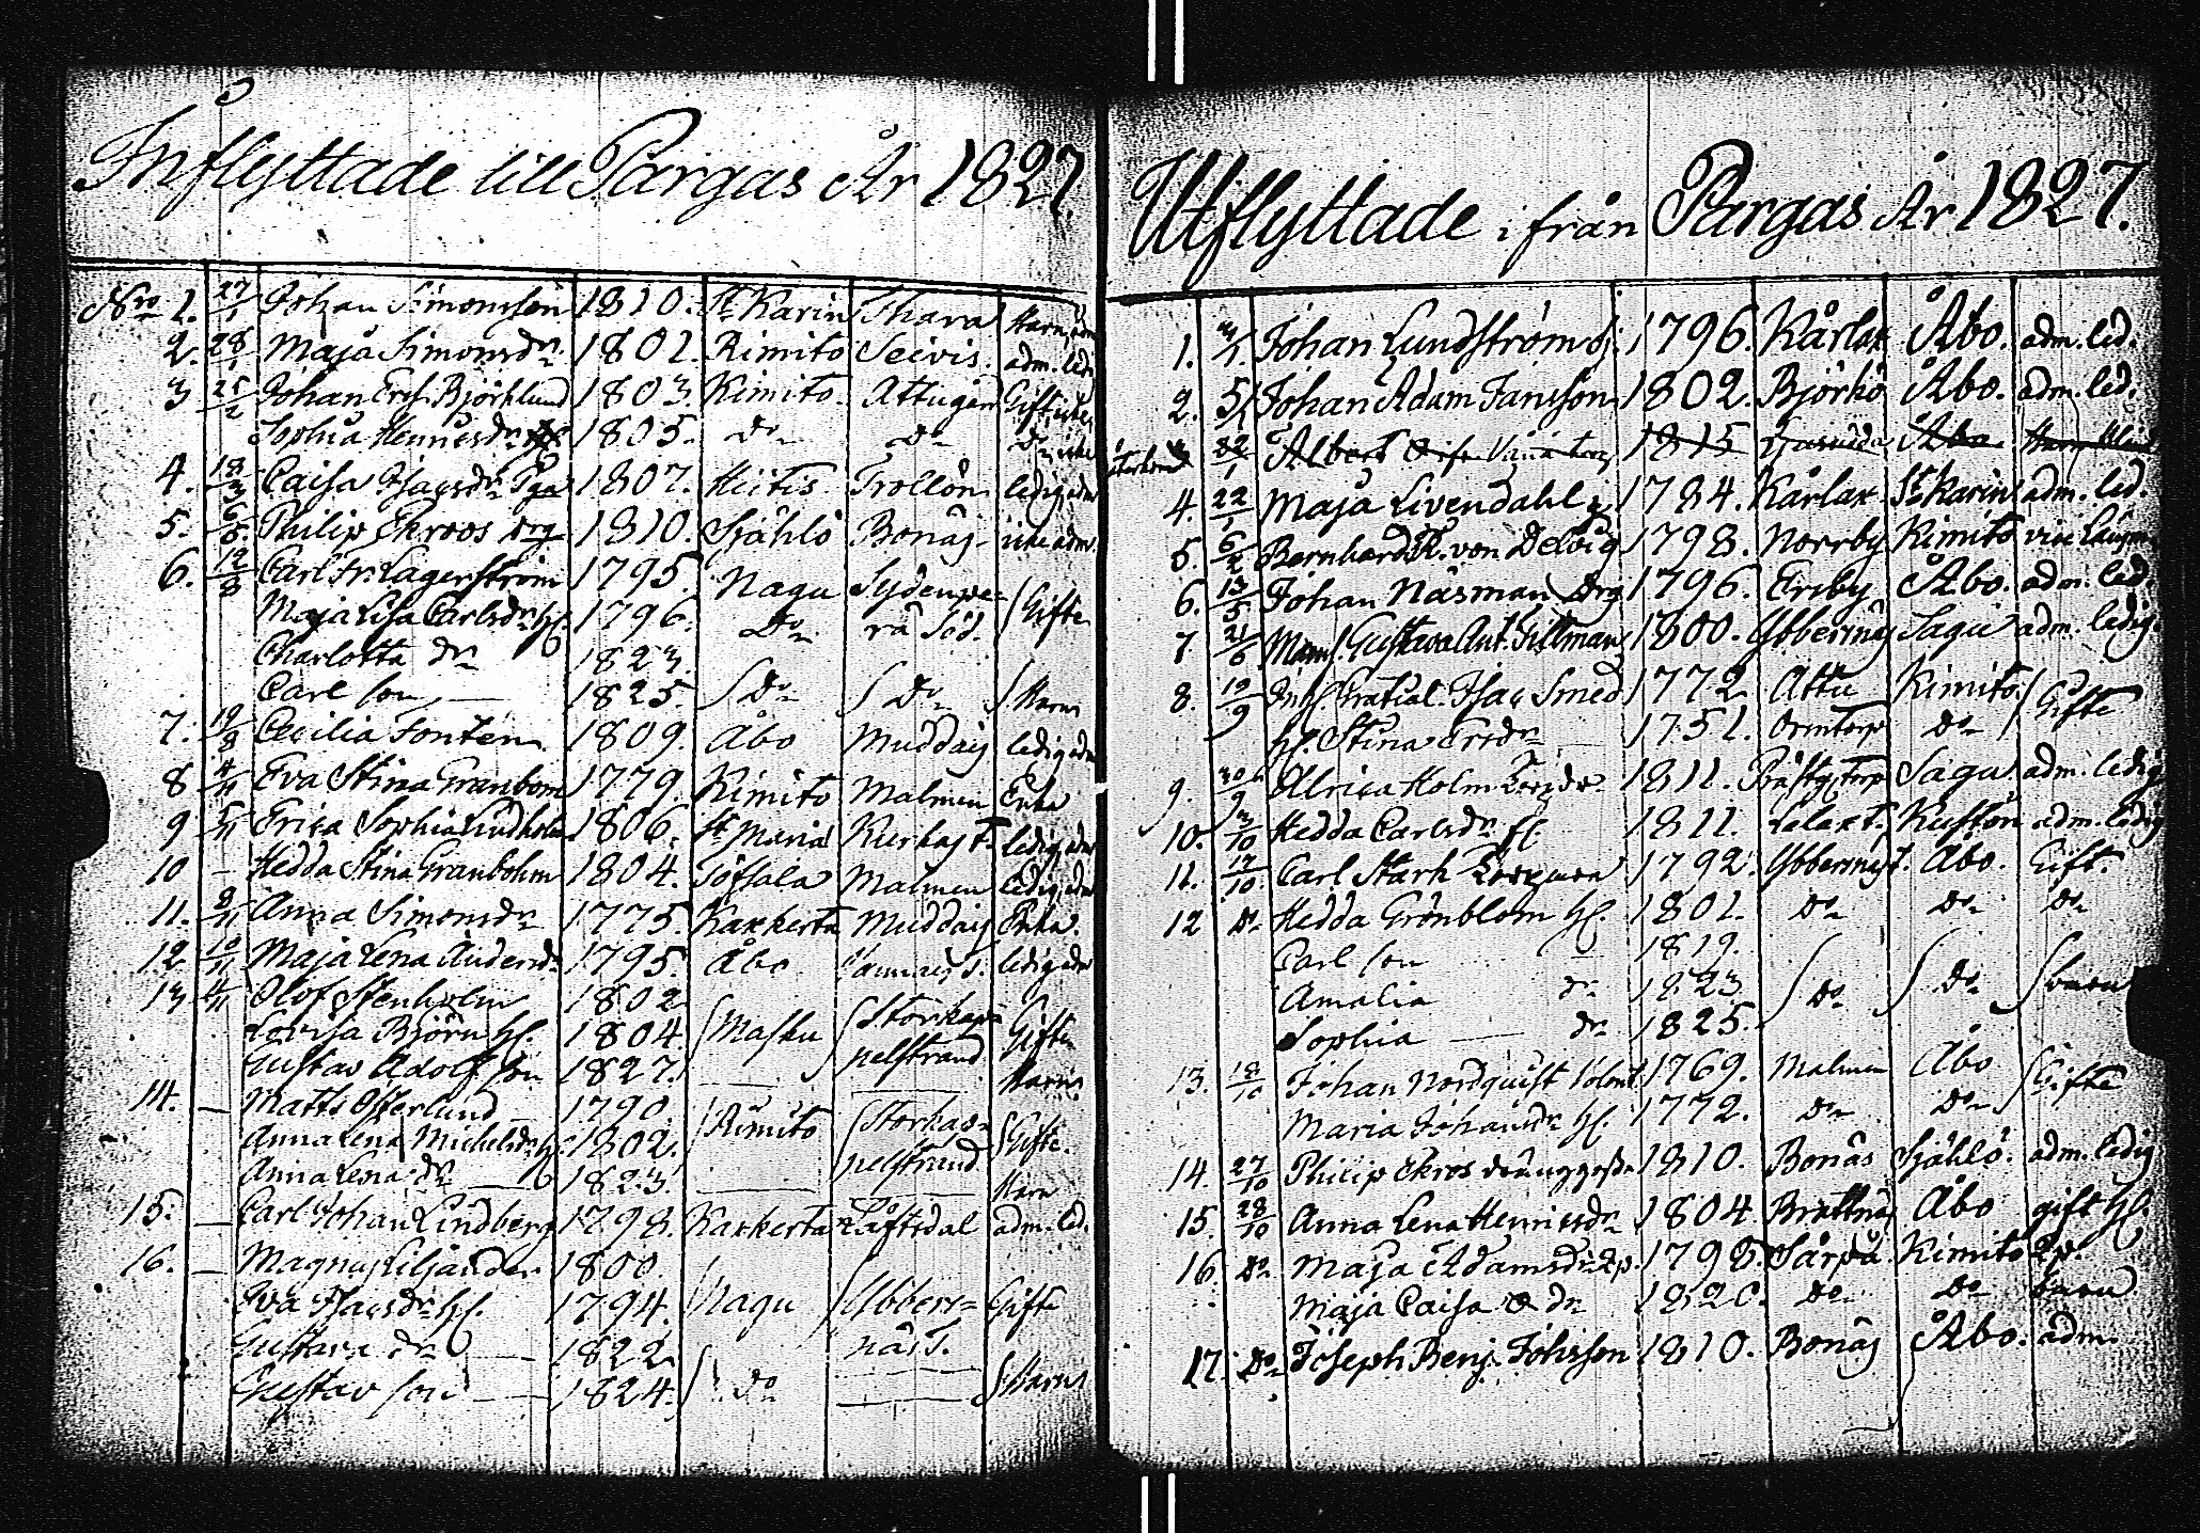 Inflyttade till Pargas År 1827.
Nro 1. 27/1 Johan Simonsson 1810. St Karin Thara Barn
2. 28/1 Maja Simonsdr 1801. Rimito Seivis. adm. led
3 25/2 Johan Ers. Björklund 1803. Kimito. Attuger Gift
Sophia Henricsdr 1805. Do Do
4. 18/3 Caisa Isacsdr Pga 1807. Hiitis Trollön ledig adm
5. 6/5. Philip Ekroos drg 1810. Sjählö Bonäs icke adm.
6. 12/8 Carl Fr. Lagerström 1795. Nagu Sydenpe= Gifte
Maja Lisa Carlsdr hu. 1796. Do rä Söd.
Charlotta dr 1823.
Carl son 1825. Do Do Barn
7. 19/8 Cecilia Fonten 1809. Åbo Muddais ledig adm
8 4/11 Eva Stina Granbom 1779. Kimito Malmen Enka
9 5/11 Erica Sophia Lindholm 1806. St Maria Kurkas T. ledig adm
10 – Hedda Stina Granbohm 1804. Töfsala Malmen ledig adm
11. 9/11 Anna Simonsdr 1775. Kakkerta Muddais Enka.
12 10/11 Maja Lena Andersdr 1795. Åbo ledig adm
13 4/11 Olof Stenholm 1802 Masku Storka= Gifte
Lovisa Björn hu. 1804. pelstrand
Gustav Adolf son 1827. Barn
14. – Matts Österlund 1790. Rimito Storka= Gifte.
Anna Lena Michelsdr hu. 1802. pelstrand
Anna Lena dr 1823. Barn
15. – Carl Johan Lindberg 1798. Kakkerta Löftsdal adm. led.
16. – Magnus Liljander 1800. Nagu Ybbers= Gifte
Eva Isacsdr hu. 1794. näs T.
Gustava dr 1822
Gustav son 1824. Do Barn
Utflyttade ifrån Pargas År 1827.
1. 3/1. Johan Lundström 1796. Kårlax Åbo. adm. led.
2. 5/1 Johan Adam Jansson 1802. Björkö Åbo. adm. led.
22/1 Albert 1815 Åbo
4. 22/1 Maja Livendahl 1784. Kårlax St Karin adm. led.
5. 6/2 Bernhard R. von Delvig 1798. Norrby Rimito vice
6. 13/5 Johan Näsman Drg 1796. Ersby Åbo. adm. led.
7. 21/6 Mams. Gustava Ant. Tillman 1800. Ybbersnäs Sagu adm. ledig.
8. 10/9 Isac Smed 1772 Attu Kimito. Gifte
hu. Stina Ersdr 1751. Ormtorp Do
9. 30/9 Ulrica Holm 1811. Prästg. Torp Sagu adm. ledig
10. 3/10 Hedda Carlsdr 1811. Lelax t. Kustön adm. ledig
11. 17/10. Carl Stark 1792. Ybbersnäs T. Åbo. Gift.
12 Do Hedda Grönblom hu. 1801. Do Do Do
Carl son 1819.
Amalia dr 1823 Do Do barn
Sophia dr 1825.
13. 18/10 Johan Nordquist Volont. 1769. Malmen Åbo Gifte
Maria Johansdr hu. 1772. Do Do
14. 27/10 Philip Ekros 1810. Bonäs Sjählö. adm. ledig
15. 28/10 Anna Lena Henricsdr 1804 Brattnäs Åbo gift hu.
16. Do Maja Adamsdr 1798. Särpå Kimito
Maja Caisa dr 1820. Do Do barn
17. Do Joseph Benj. Johsson 1810. Bonäs Åbo. adm.